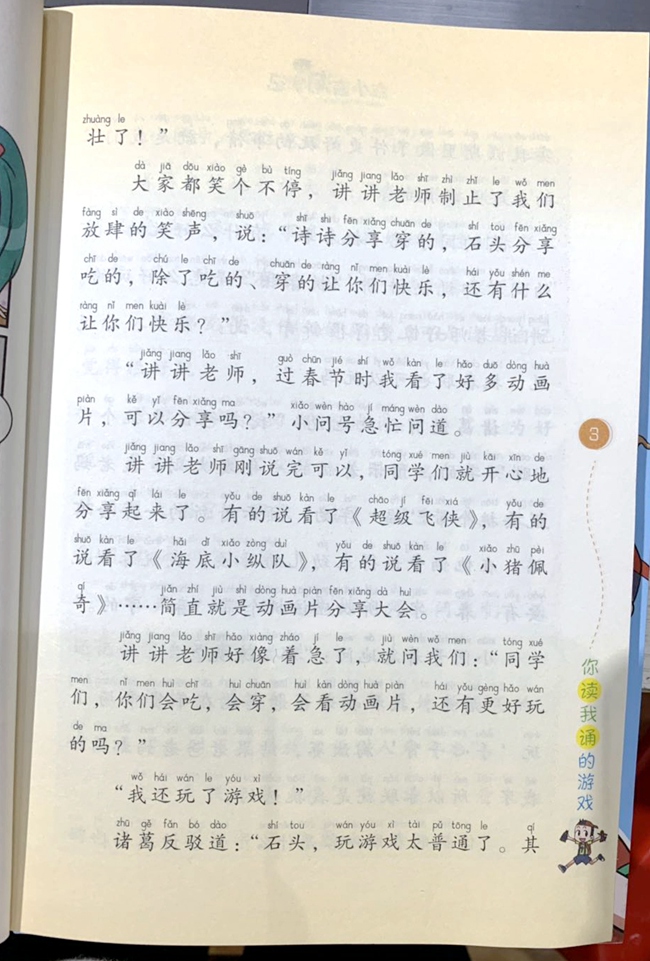 zhuàng le
壮了！”
dà jiā dōu xiào gè bù tíng jiǎng jiang lǎo shī zhì zhǐ le wǒ men
大家都笑个不停，讲讲老师制止了我们
fàng sì de xiào shēng shuō shī shi fēn xiǎng chuān de shí tou fēn xiǎng
放肆的笑声，说：“诗诗分享穿的，石头分享
chī de chú le chī de chuān de ràng nǐ men kuài lè hái yǒu shén me
吃的，除了吃的、穿的让你们快乐，还有什么
ràng nǐ men kuài lè
让你们快乐？”
jiǎng jiang lǎo shī guò chūn jié shí wǒ kàn le hǎo duō dòng huà
“讲讲老师，过春节时我看了好多动画
piàn kě yǐ fēn xiǎng ma xiǎo wèn hào jí máng wèn dào
片，可以分享吗？”小问号急忙问道。
jiǎng jiang lǎo shī gāng shuō wán kě yǐ tóng xué men jiù kāi xīn de
讲讲老师刚说完可以，同学们就开心地
fēn xiǎng qǐ lái le yǒu de shuō kàn le chāo jí fēi xiá yǒu de
分享起来了。有的说看了《超级飞侠》，有的
shuō kàn le hǎi dǐ xiǎo zòng duì yǒu de shuō kàn le xiǎo zhū pèi
说看了《海底小纵队》，有的说看了《小猪佩
qí jiǎn zhí jiù shì dòng huà piàn fēn xiǎng dà huì
奇》……简直就是动画片分享大会。
jiǎng jiang lǎo shī hǎo xiàng zháo jí le jiù wèn wǒ men tóng xué
讲讲老师好像着急了，就问我们：“同学
men nǐ men huì chī huì chuān huì kàn dòng huà piàn hái yǒu gèng hǎo wán
们，你们会吃，会穿，会看动画片，还有更好玩
de ma
的吗？”
wǒ hái wán le yóu xì
“我还玩了游戏！”
zhū gě fǎn bó dào shí tou wán yóu xì tài pǔ tōng le qí
诸葛反驳道：“石头，玩游戏太普通了。其
3
你读我诵的游戏